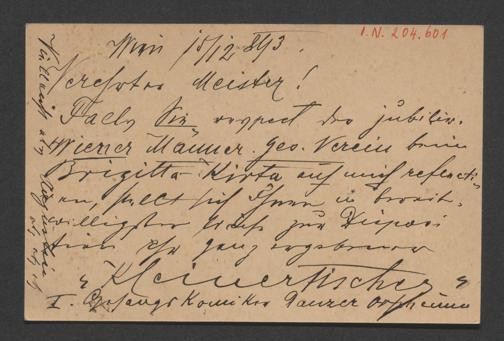 I.N. 204.601
Wien 15/12 893.
Verehrter Meister!
Falls Sie respect der jubilir.
Wiener Männer. Ges. Verein beim
Brigitta-Kirta auf mich reflecti-
en, stellt sich Ihnen in bereit-
willigster Weise zur Disposi
tion Ihr ganz ergebener
"Kleinertischer"
I. Gesangs Komiker Danzer Orpheum